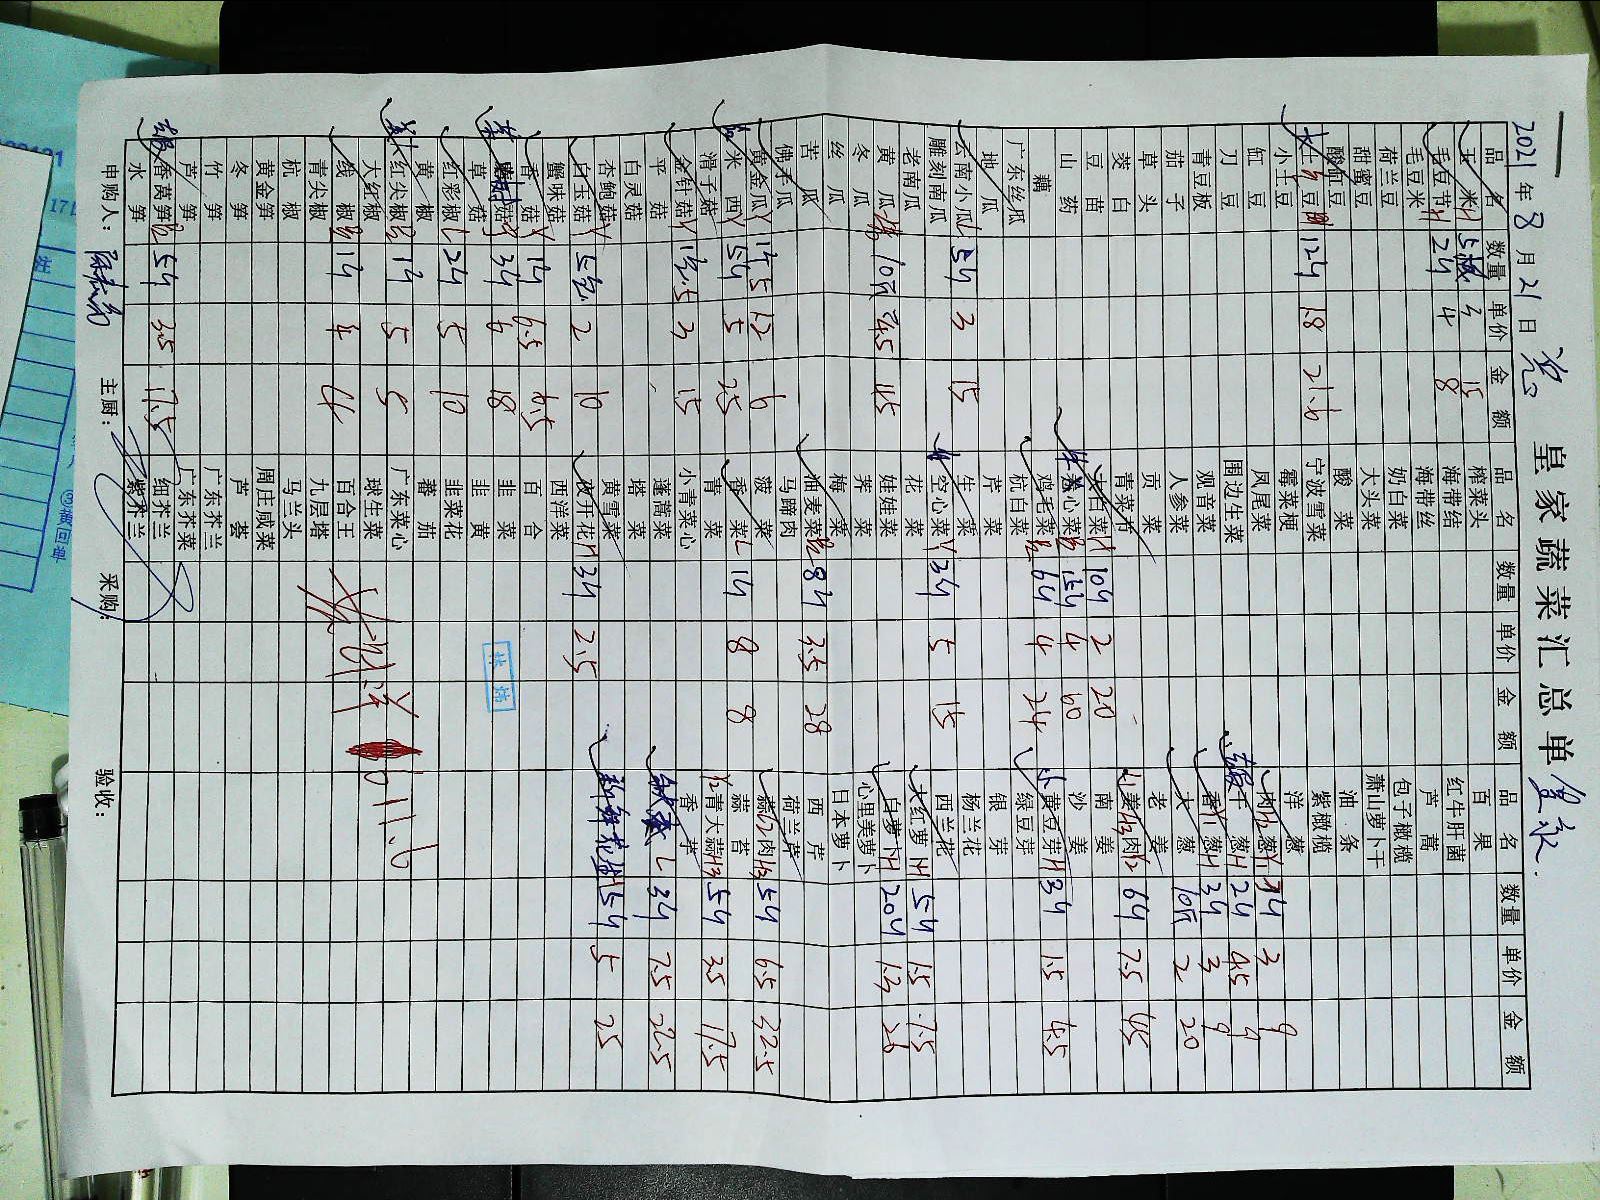 2021年8月21日
皇家蔬菜汇总单
品名 数量 单价 金额 品名 数量 单价 金额 品名 数量 单价 金额
玉米 3 15 榨菜头 百果
毛豆节 24 4 8 海带结 红牛肝菌
毛豆米 海带丝 芦蒿
荷兰豆 奶白菜 包子橄榄
甜蜜豆 大头菜 萧山萝卜干
酸缸豆 酸菜 油条
土豆 124 1.8 21.6 宁波雪菜 紫橄榄
小土豆 霉菜梗 洋葱
缸豆 凤尾菜 肉葱 3 9
刀豆 围边生菜 干葱 24 4.5 9
青豆板 观音菜 香葱 34 3 9
茄子 人参菜 大葱 2 20
草头 贡菜 老姜
茭白 青菜秆 姜肉 64 7.5 45
豆苗 大白菜 104 2 20 南姜
山药 卷心菜 154 4 60 沙姜
藕 鸡毛菜 64 4 24 黄豆芽 34 1.5 4.5
广东丝瓜 杭白菜 绿豆芽
地瓜 芹菜 银芽
云南小瓜 54 3 15 生菜 杨兰花
雕刻南瓜 空心菜 34 5 15 西兰花
老南瓜 花菜 大红萝卜 54 1.5 7.5
黄瓜 4.5 45 娃娃菜 白萝卜 204 1.3 26
冬瓜 荠菜 心里美萝卜
丝瓜 梅菜 日本萝卜
苦瓜 油麦菜 84 3.5 28 西芹
佛手瓜 马蹄肉 荷兰芹
黄金瓜 12 6 菠菜 蒜肉 54 6.5 32.5
米西 54 5 25 香菜 14 8 8 蒜苔
滑子菇 青菜 青大蒜 54 3.5 17.5
金针菇 3 15 小青菜心 香芋
平菇 蓬蒿菜 34 7.5 22.5
白灵菇 塔菜
杏鲍菇 黄雪菜 54 5 25
白玉菇 2 10 夜开花 34 2.5
蟹味菇 西洋菜
香菇 14 6.5 6.5 百合
34 6 18 韭菜
草菇 韭黄
红彩椒 24 5 10 韭菜花
黄椒 蕃茄
红尖椒 14 5 5 广东菜心
大红椒 球生菜
线椒 14 4 4 百合王
青尖椒 九层塔
杭椒 马兰头
黄金笋 周庄咸菜
冬笋 芦荟
竹笋 广东芥兰
芦笋 广东芥菜
香莴笋 54 3.5 17.5 细芥兰
水笋 紫芥兰
1011.6
申购人： 主厨： 采购： 验收：
注
黄回单